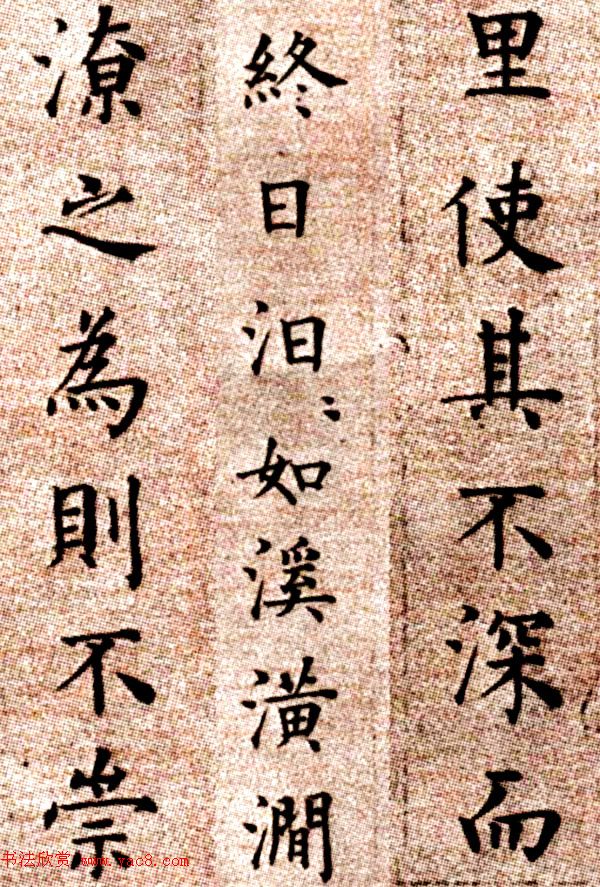 里使其不深而
終日汩〻如溪潢澗
潦之為則不崇
书法欣赏 www.yac8.com